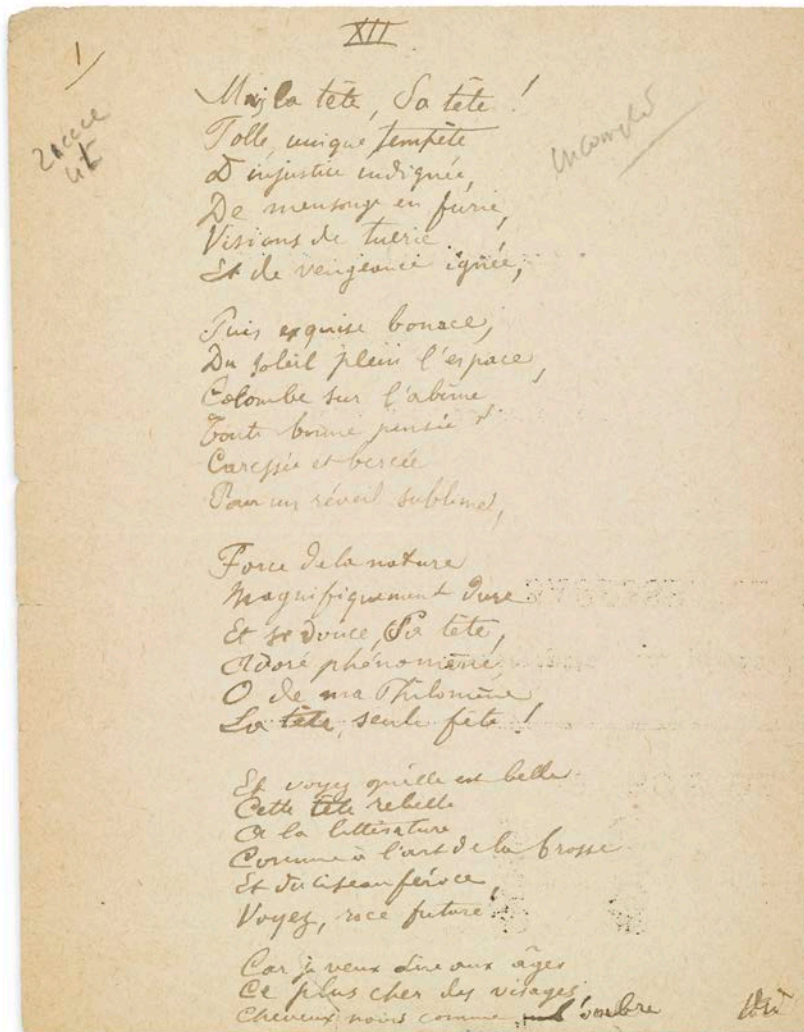 XII
1
incomplet
Mais la tête, Sa tête !
Folle, unique tempête
D'injustice indignée,
De mensonge en furie,
Visions de tuerie
Et de vengeance ignée,
Puis exquise bonace,
Du soleil plein l'espace,
Colombe sur l'abîme,
Toute bonne pensée
Caressée et bercée
Pour un réveil sublime,
Force de la nature
Magnifiquement dure
Et si douce, Sa tête,
Adoré phénomène,
O de ma Philomène
La tête, seule fête !
Et voyez qu'elle est belle
Cette tête rebelle
A la littérature
Comme à l'art de la brosse
Et du ciseau féroce,
Voyez, race future !
Car je veux dire aux âges
Ce plus cher des visages
Cheveux noirs comme l'ombre